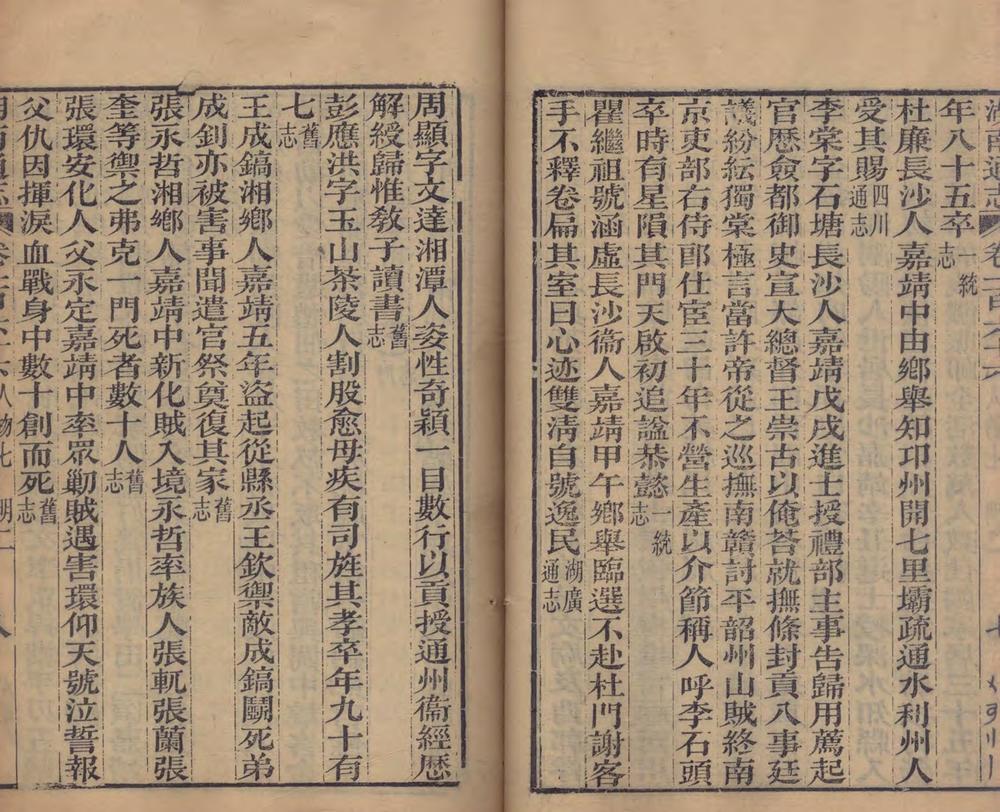 湖南通志 卷二百六十六
年八十五卒一統志
杜廉長沙人嘉靖中由鄉舉知卭州開七里壩疏通水利州人
受其賜四川通志
李棠字石塘長沙人嘉靖戊戌進士授禮部主事告歸用薦起
官歷僉都御史宣大總督王崇古以俺荅就撫條封貢八事廷
議紛紜獨棠極言當許帝從之巡撫南贛討平韶州山賊終南
京吏部右侍郎仕宦三十年不營生產以介節稱人呼李石頭
卒時有星隕其門天啟初追諡恭懿一統志
瞿繼祖號涵虛長沙衞人嘉靖甲午鄉舉臨選不赴杜門謝客
手不釋卷扁其室曰心迹雙淸自號逸民湖廣通志
周顯字文達湘潭人姿性奇穎一目數行以貢授通州衞經歷
解綬歸惟敎子讀書舊志
彭應洪字玉山茶陵人割股愈母疾有司旌其孝卒年九十有
七舊志
王成鎬湘鄉人嘉靖五年盜起從縣丞王欽禦敵成鎬鬬死弟
成釗亦被害事聞遣官祭奠復其家舊志
張永哲湘鄉人嘉靖中新化賊入境永哲率族人張軏張蘭張
奎等禦之弗克一門死者數十人舊志
張環安化人父永定嘉靖中率眾勦賊遇害環仰天號泣誓報
父仇因揮淚血戰身中數十創而死舊志